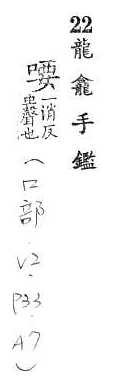 22 龍龕手鑑
喓 一消反
虫聲也
(口部.V2.P33.A7)